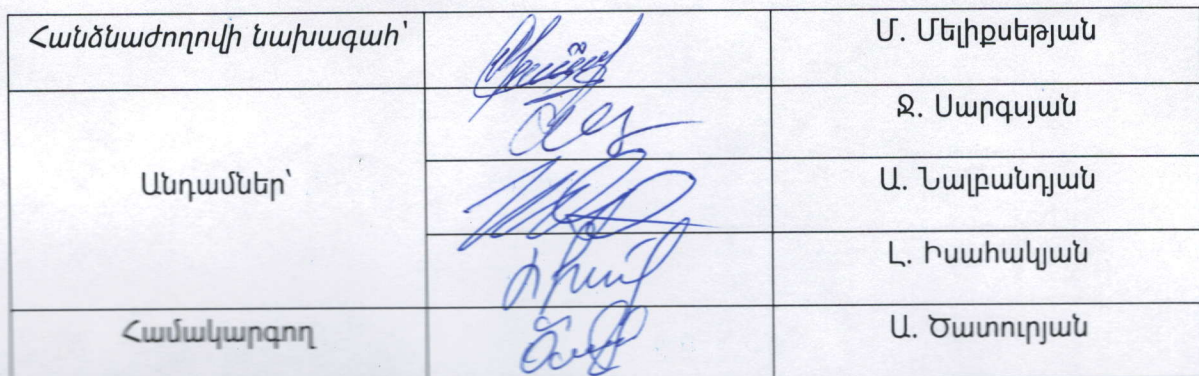 Հանձնաժողովի նախագահ՝ Մ. Մելիքսեթյան
Ջ. Սարգսյան
Անդամներ՝ Ա. Նալբանդյան
Լ. Իսահակյան
Համակարգող Ա. Ծատուրյան